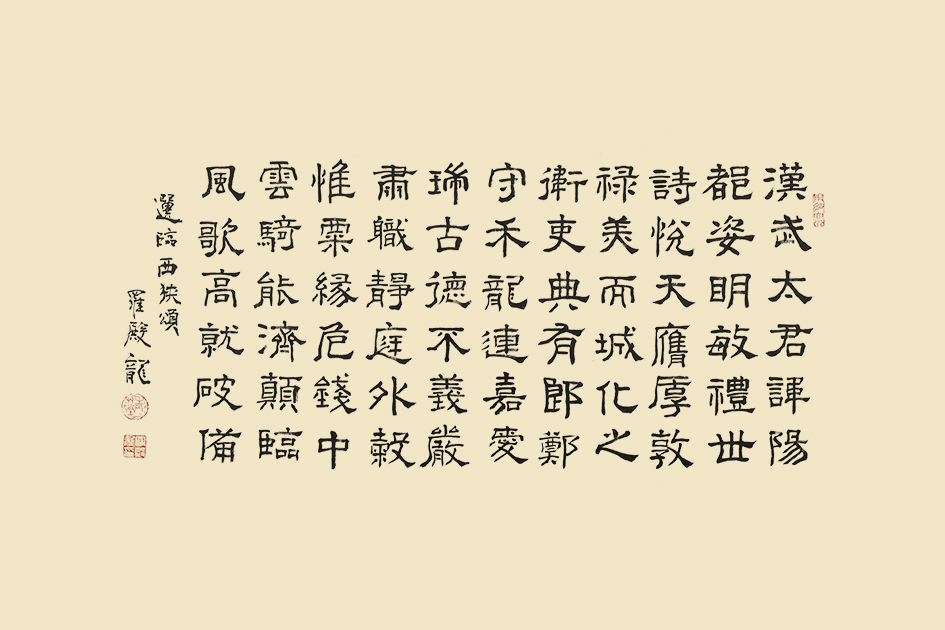 漢武太君諱陽
都姿明敏禮世
詩悅天膺厚敦
祿美而城化之
衛吏典有郎鄭
守禾龍連嘉愛
瑞古德不義嚴
肅職靜庭外榖
惟粟緣危錢中
雲騎能濟顛臨
風歌高就破備
選臨西狹頌
羅殿龍